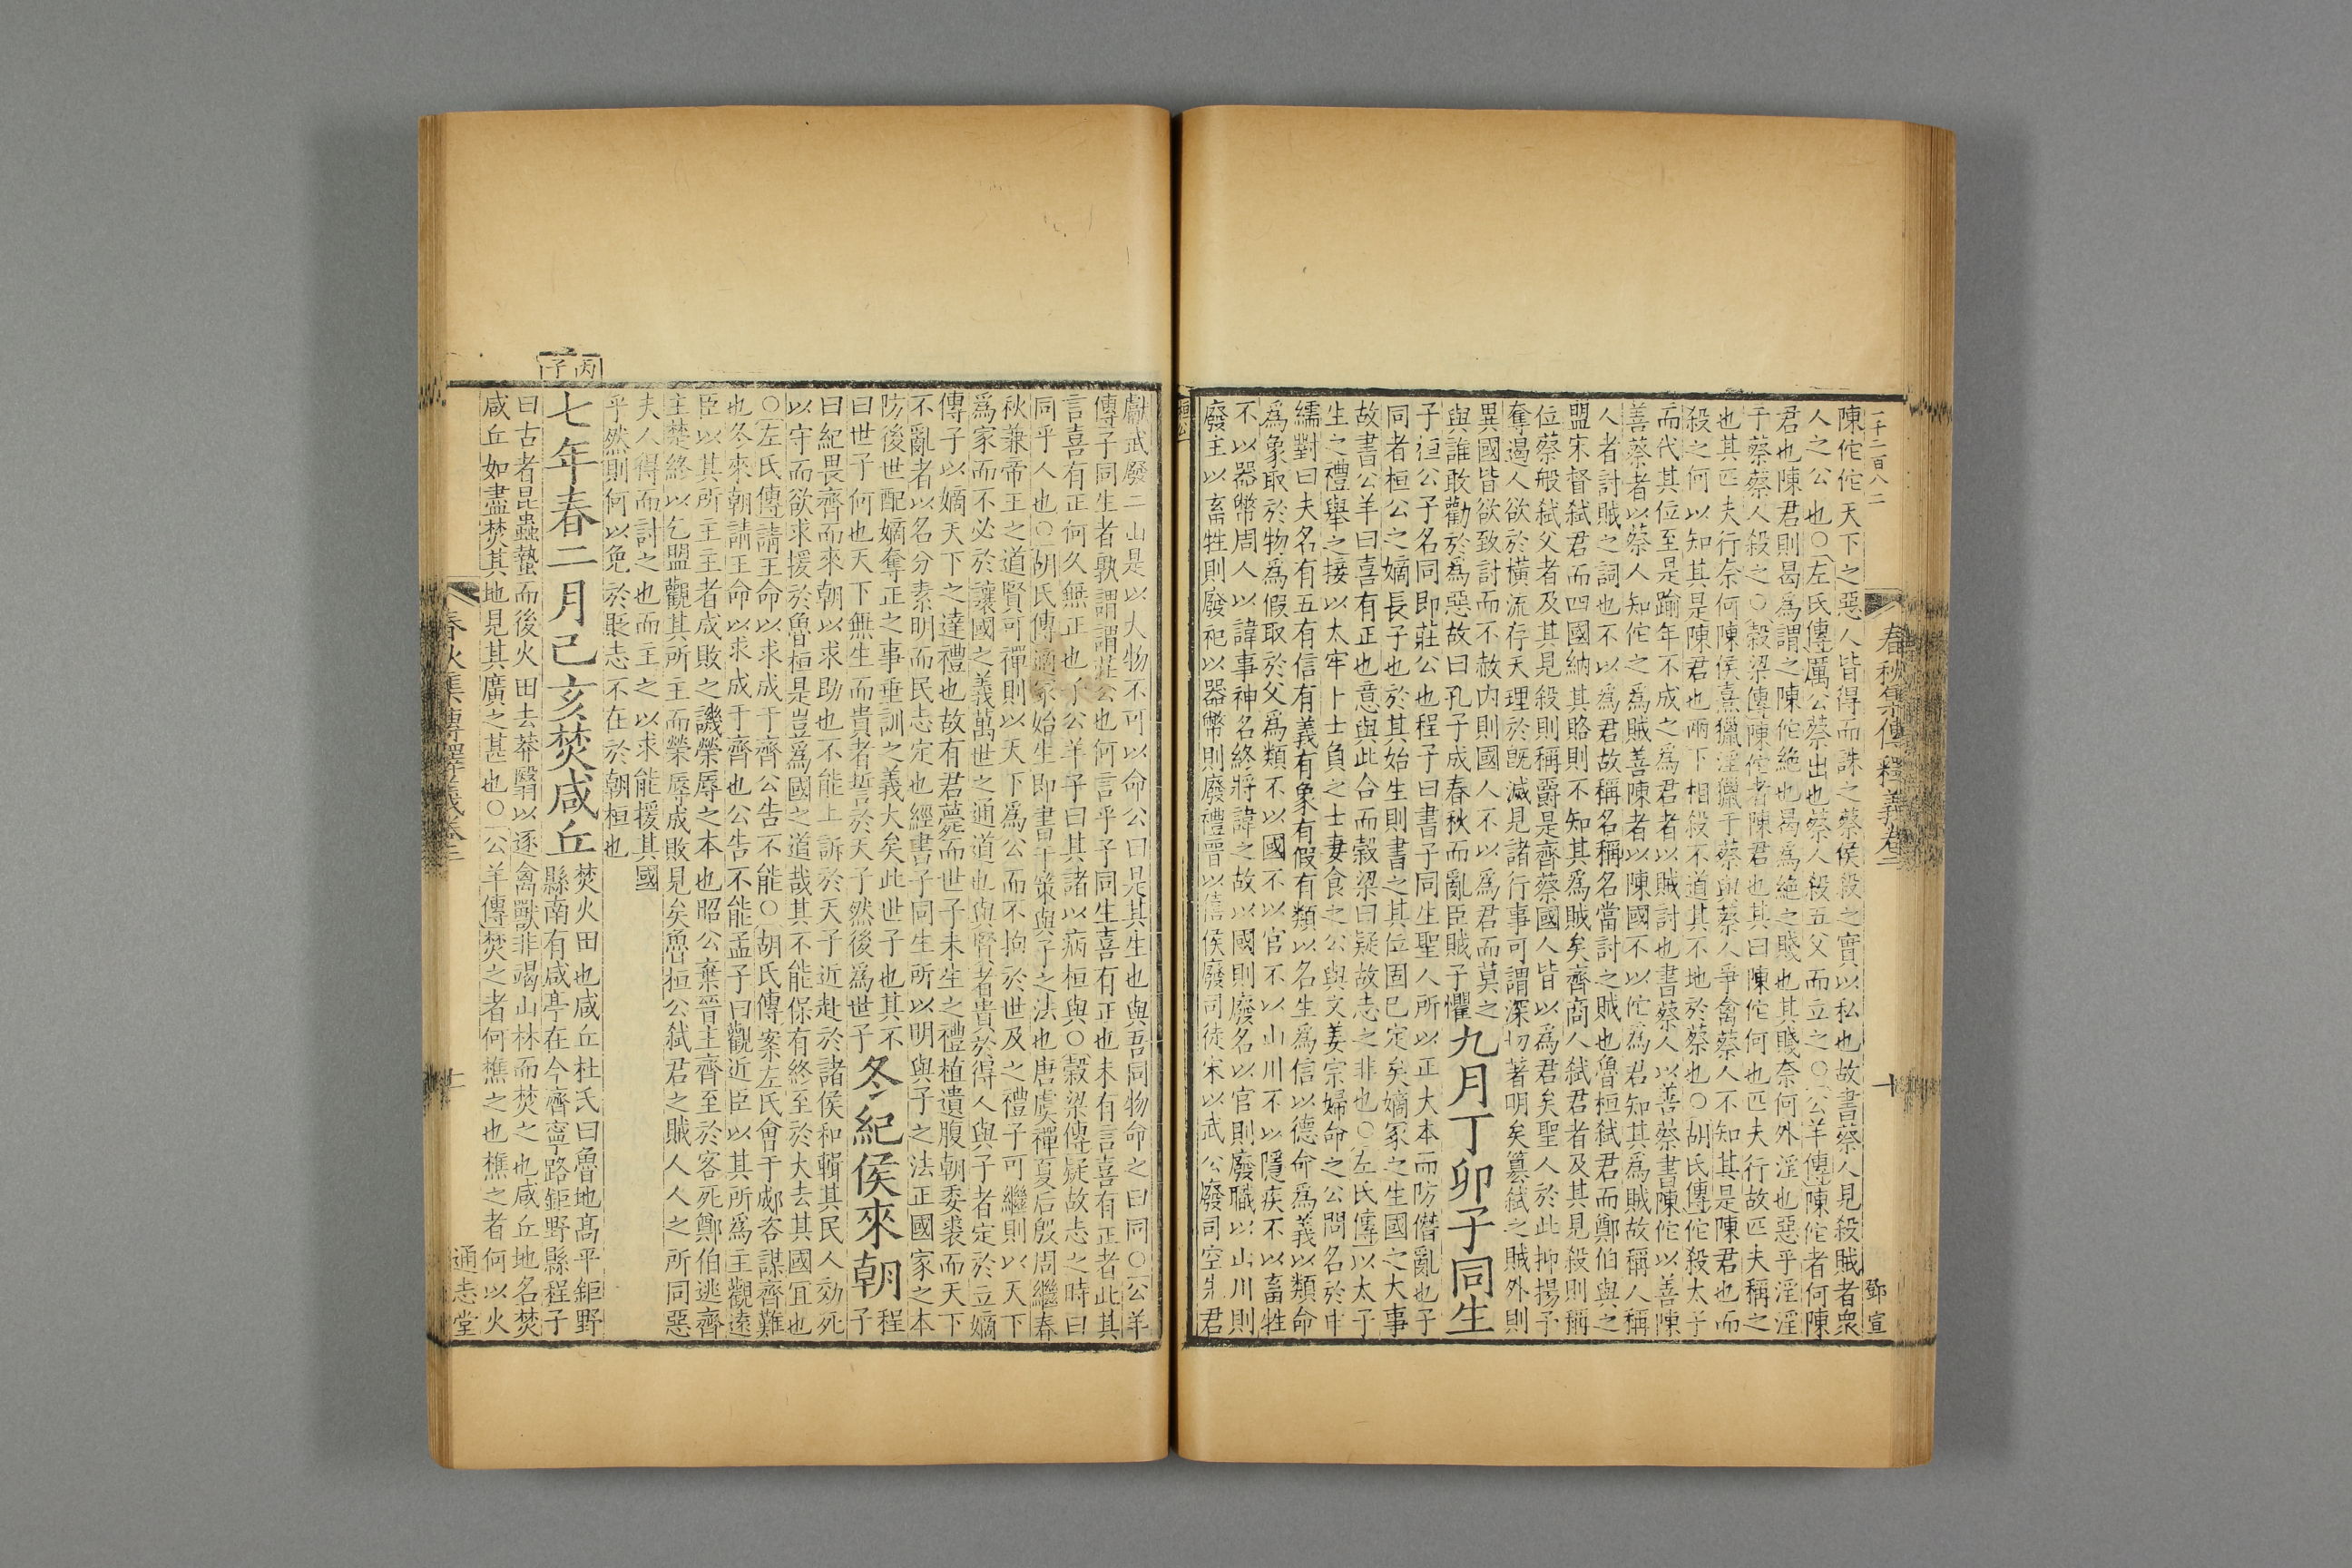 一千二百八二
春秋集傳釋義卷二
十
鄧宣
陳佗佗天下之惡人皆得而誅之蔡侯殺之實以私也故書蔡人見殺賊者衆
人之公也○左氏傳厲公蔡出也蔡人殺五父而立之○公羊傳陳佗者何陳
君也陳君則曷為謂之陳佗絶也曷為絶之賤也其賤奈何外淫也惡乎淫淫
于蔡蔡人殺之○穀梁傳陳佗者陳君也其曰陳佗何也匹夫行故匹夫稱之
也其匹夫行奈何陳侯憙獵淫獵于蔡與蔡人爭禽蔡人不知其是陳君也而
殺之何以知其是陳君也兩下相殺不道其不地於蔡也○胡氏傳佗殺太子
而代其位至是踰年不成之爲君者以賊討也書蔡人以善蔡書陳佗以善陳
善蔡者以蔡人知佗之爲賊善陳者以陳國不以佗爲君知其爲賊故稱人稱
人者討賊之詞也不以爲君故稱名稱名當討之賊也魯桓弑君而鄭伯與之
盟宋督弑君而四國納其賂則不知其爲賊矣齊商人弑君者及其見殺則稱
位蔡般弑父者及其見殺則稱爵是齊蔡國人皆以爲君矣聖人於此抑揚予
奪遏人欲於橫流存天理於旣滅見諸行事可謂深切著明矣篡弑之賊外則
異國皆欲致討而不赦內則國人不以爲君而莫之
與誰敢勸於爲惡故曰孔子成春秋而亂臣賊子懼
九月丁卯子同生
子桓公子名同即莊公也程子曰書子同生聖人所以正大本而防僭亂也子
同者桓公之嫡長子也於其始生則書之其位固已定矣嫡冢之生國之大事
故書公羊曰喜有正也意與此合而穀梁曰疑故志之非也○左氏傳以太子
生之禮舉之接以太牢卜士負之士妻食之公與文姜宗婦命之公問名於申
繻對曰夫名有五有信有義有象有假有類以名生爲信以德命爲義以類命
爲象取於物爲假取於父爲類不以國不以官不以山川不以隱疾不以畜牲
不以器幣周人以諱事神名終將諱之故以國則廢名以官則廢職以山川則
廢主以畜牲則廢祀以器幣則廢禮晉以僖侯廢司徒宋以武公廢司空先君
獻武廢二山是以大物不可以命公曰是其生也與吾同物命之曰同○公羊
傳子同生者孰謂謂莊公也何言乎子同生喜有正也未有言喜有正者此其
言喜有正何久無正也子公羊子曰其諸以病桓與○穀梁傳疑故志之時曰
同乎人也○胡氏傳適冢始生即書于策與子之法也唐虞禪夏后殷周繼春
秋兼帝王之道賢可禪則以天下爲公而不拘於世及之禮子可繼則以天下
爲家而不必於讓國之義萬世之通道也與賢者貴於得人與子者定於立嫡
傳子以嫡天下之達禮也故有君薨而世子未生之禮植遺腹朝委裘而天下
不亂者以名分素明而民志定也經書子同生所以明與子之法正國家之本
防後世配嫡奪正之事垂訓之義大矣此世子也其不
曰世子何也天下無生而貴者誓於天子然後爲世子
冬紀侯來朝
程
子
曰紀畏齊而來朝以求助也不能上訴於天子近赴於諸侯和輯其民人効死
以守而欲求援於魯桓是豈爲國之道哉其不能保有終至於大去其國宜也
○左氏傳請王命以求成于齊公告不能○胡氏傳案左氏會于郕咨謀齊難
也冬來朝請王命以求成于齊也公告不能孟子曰觀近臣以其所爲主觀遠
臣以其所主主者成敗之譏榮辱之本也昭公棄晉主齊至於客死鄭伯逃齊
主楚終以乞盟觀其所主而榮辱成敗見矣魯桓公弑君之賊人人之所同惡
夫人得而討之也而主之以求能援其國
乎然則何以免於貶志不在於朝桓也
丙子
七年春二月己亥焚咸丘
焚火田也咸丘杜氏曰魯地髙平鉅野
縣南有咸亭在今齊寧路鉅野縣程子
曰古者昆蟲蟄而後火田去莽翳以逐禽獸非竭山林而焚之也咸丘地名焚
咸丘如盡焚其地見其廣之甚也○公羊傳焚之者何樵之也樵之者何以火
春秋集傳釋義卷二
通志堂